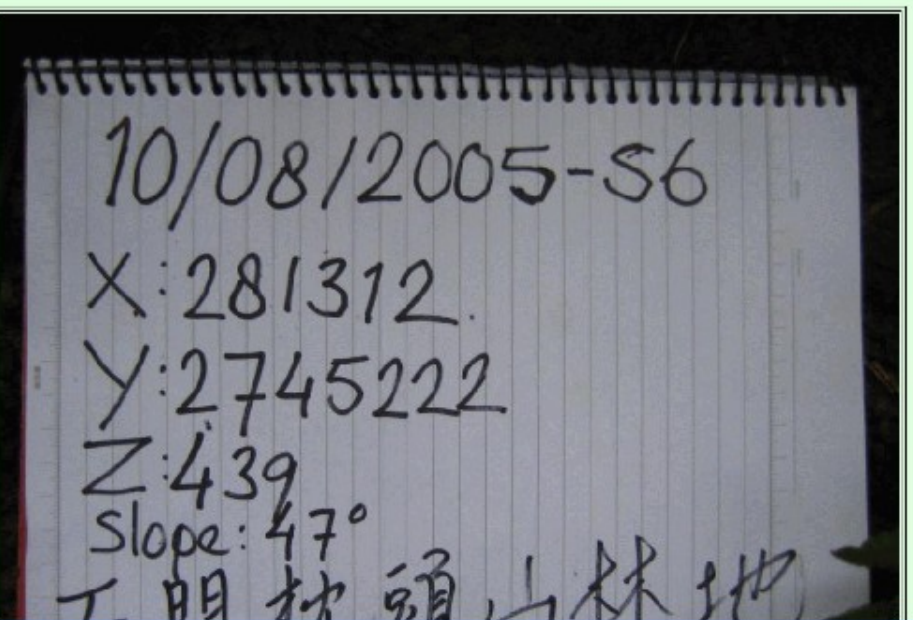 10/08/2005-S6
X:281312.
Y:2745222
Z:439
Slope: 47°
枕頭山林地